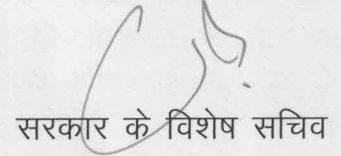 सरकार के विशेष सचिव